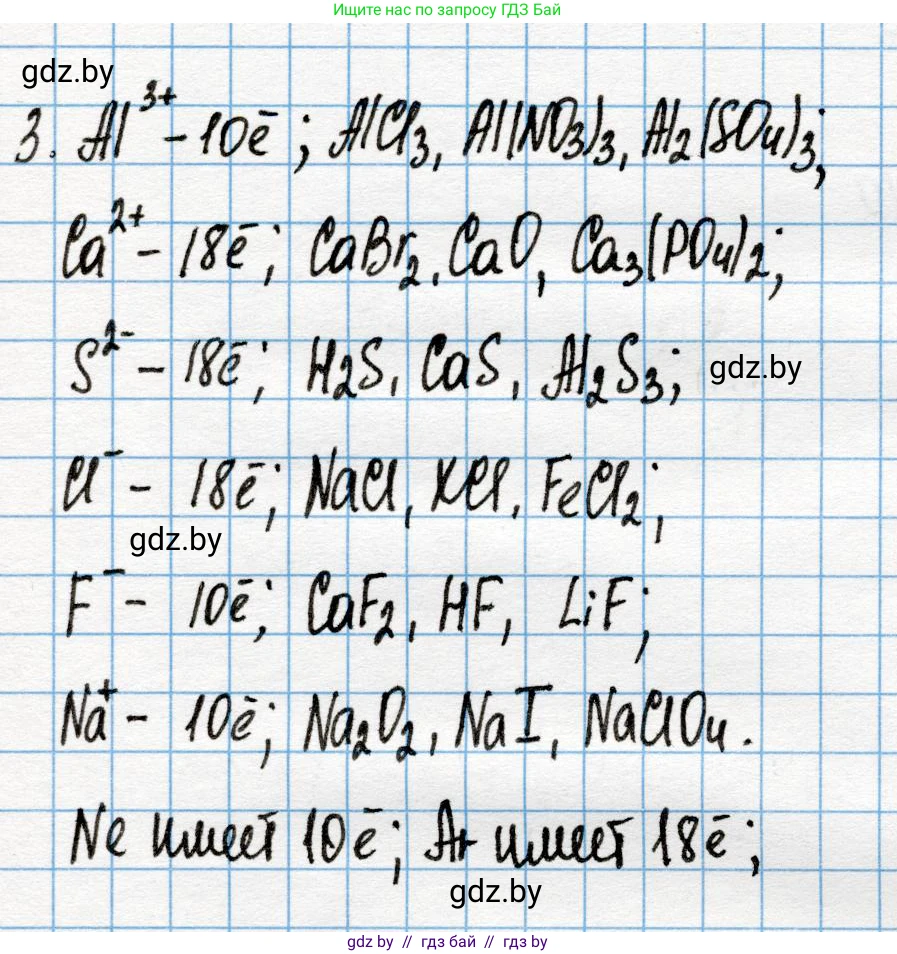 Ищите нас по запросу ГДЗ Бай
gdz.by
3. Al³⁺ - 10ē; AlCl₃, Al(NO₃)₃, Al₂(SO₄)₃;
Ca²⁺ - 18ē; CaBr₂, CaO, Ca₃(PO₄)₂;
S²⁻ - 18ē; H₂S, CaS, Al₂S₃;
gdz.by
Cl⁻ - 18ē; NaCl, KCl, FeCl₂;
gdz.by
F⁻ - 10ē; CaF₂, HF, LiF;
Na⁺ - 10ē; Na₂O₂, NaI, NaClO₄.
Ne имеет 10ē; Ar имеет 18ē;
gdz.by
gdz.by // гдз бай // гдз by